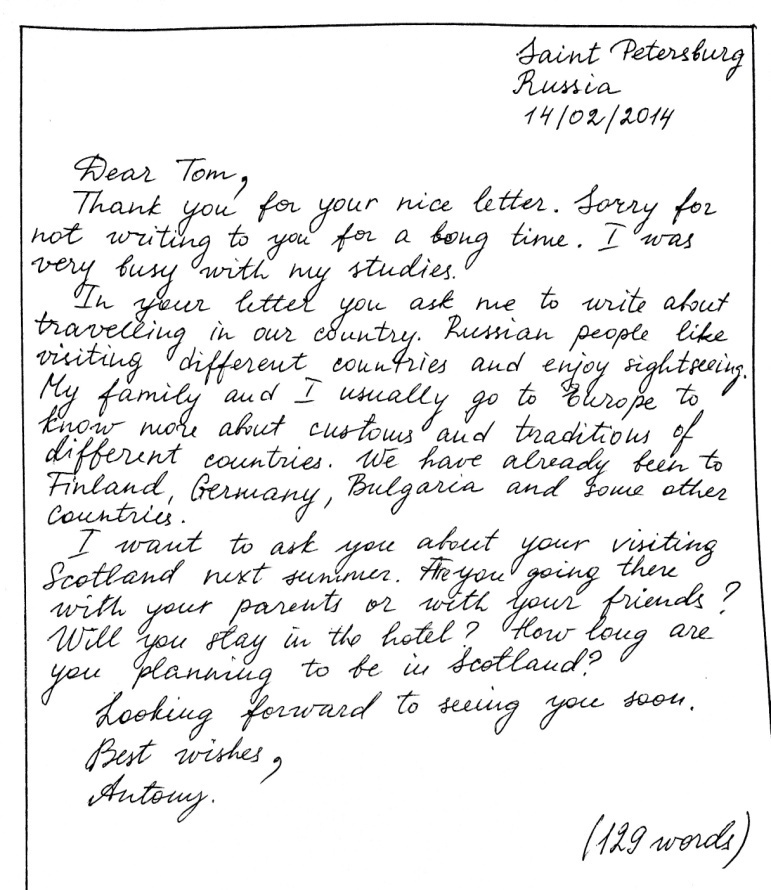 Saint Petersburg
Russia
14/02/2014
Dear Tom,
Thank you for your nice letter. Sorry for
not writing to you for a long time. I was
very busy with my studies.
In your letter you ask me to write about
travelling in our country. Russian people like
visiting different countries and enjoy sightseeing.
My family and I usually go to Europe to
know more about customs and traditions of
different countries. We have already been to
Finland, Germany, Bulgaria and some other
countries.
I want to ask you about your visiting
Scotland next summer. Are you going there
with your parents or with your friends?
Will you stay in the hotel? How long are
you planning to be in Scotland?
Looking forward to seeing you soon.
Best wishes,
Antony.
(129 words)